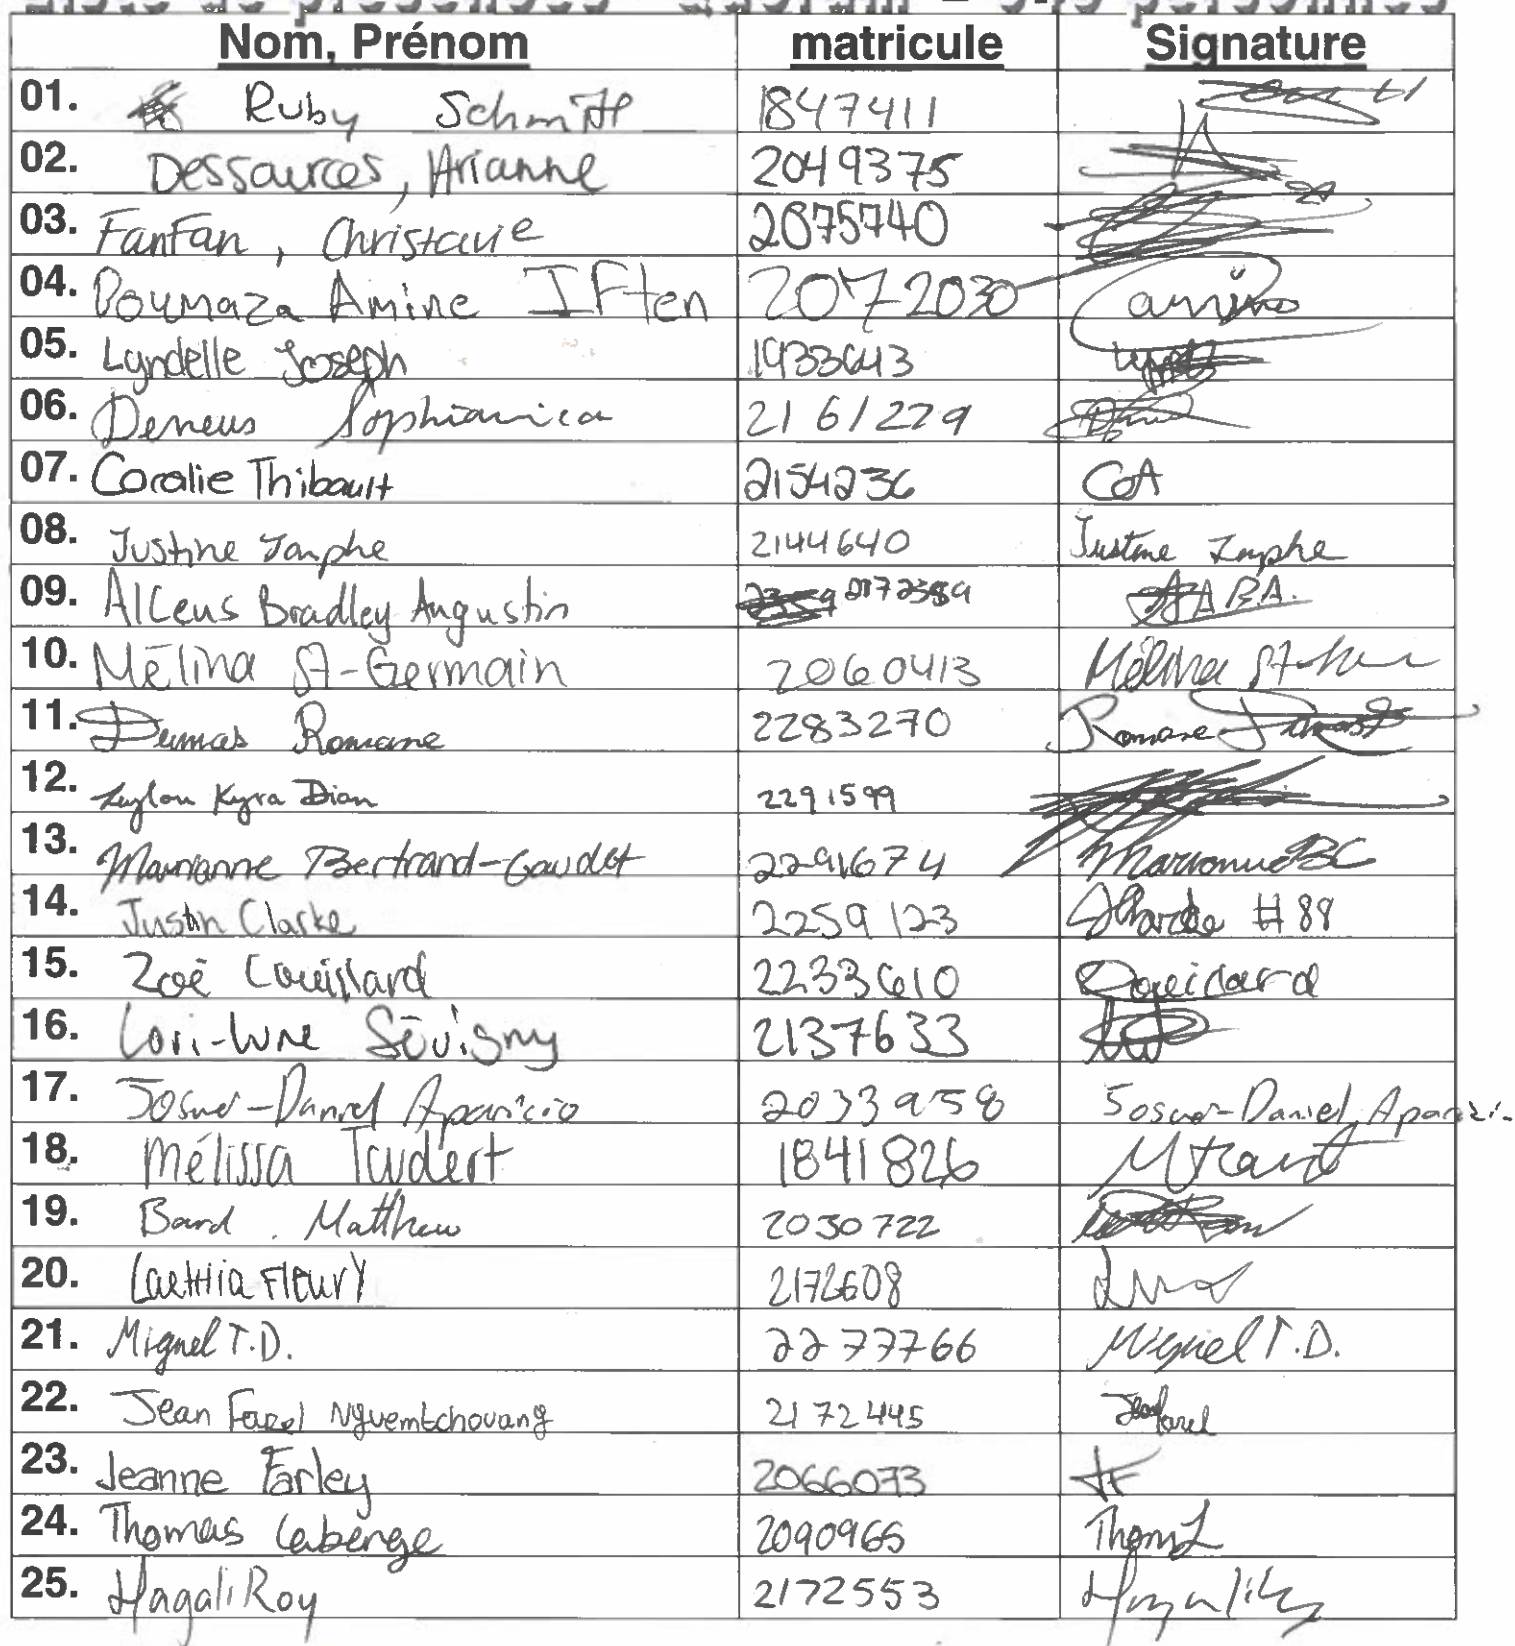 Liste de présences - Quorum = 345 personnes
Nom, Prénom matricule Signature
01. Ruby Schmitt 1847411
02. Dessources, Arianne 2049375
03. FanFan, Christavie 2075740
04. Boumaza Amine IFten 2072030 Amine
05. Lyndelle Joseph 1933643
06. Deneus Sophianica 2161229
07. Coralie Thibault 2154236 CoA
08. Justine 2144640 Justine
09. Alceus Bradley Augustin 2172359 A B.A.
10. Mélina St-Germain 2060413 Mélina St-
11. Dumas Romane 2283270 Romane Dumas
12. Kyra Dion 2291599
13. Marianne Bertrand-Gaudet 2291674 Marianne BG
14. Justin Clarke 2259123 JClarke #88
15. Zoé Couillard 2233610 Couillard
16. Lori-Lune Sévigny 2137633
17. Josué-Daniel Aparicio 2033958 Josué-Daniel Aparici
18. Mélissa Taudert 1841826
19. Bard, Matthew 2030722
20. Laetitia Fleury 2172608
21. Miguel T.D. 2277766 Miguel T.D.
22. Jean Farel Nguemtchouang 2172445 Jean farel
23. Jeanne Farley 2066073 JF
24. Thomas Laberge 2090965 Thom L
25. Magali Roy 2172553